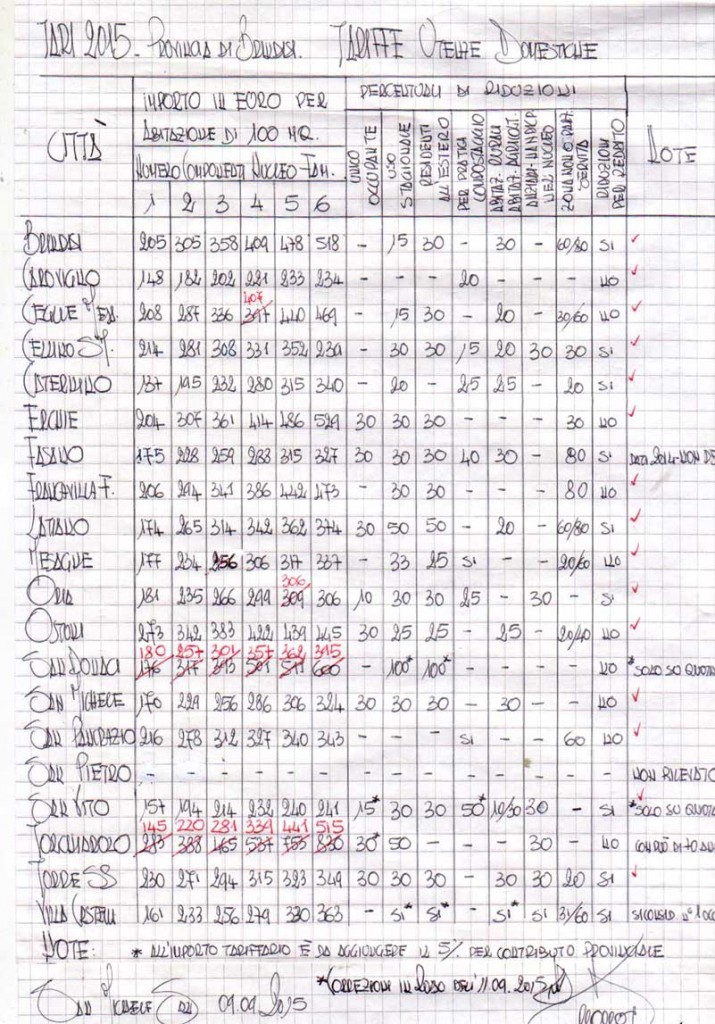 TARI 2015. PROVINCIA DI BRINDISI. TARIFFE UTENZE DOMESTICHE
CITTÀ IMPORTO IN EURO PER ABITAZIONE DI 100 MQ. PERCENTUALI DI RIDUZIONI NOTE
NUMERO COMPONENTI NUCLEO FAM. UNICO OCCUPANTE USO STAGIONALE RESIDENTI ALL'ESTERO PER PRATICA COMPOSTAGGIO ABITAZ. RURALI ABITAZ. AGRICOLT. ANZIANI-HANDICAP NEL NUCLEO ZONA NON O PARZ. SERVITA RIDUZIONI PER REDDITO
1 2 3 4 5 6
BRINDISI 205 305 358 409 478 518 - 15 30 - 30 - 60/80 SI ✓
CAROVIGNO 148 182 202 221 233 234 - - - 20 - - - NO ✓
407
CEGLIE MES. 208 287 336 397 440 469 - 15 30 - 20 - 30/60 NO ✓
CELLINO S.M. 214 281 308 331 352 239 - 30 30 15 20 30 30 SI ✓
CISTERNINO 137 195 232 280 315 340 - 20 - 25 25 - 20 SI ✓
ERCHIE 204 307 361 414 486 529 30 30 30 - - - 30 NO ✓
FASANO 175 228 259 288 315 327 30 30 30 40 30 - 80 SI DATI 2014-NON
FRANCAVILLA F. 206 294 341 386 442 473 - 30 30 - - - 80 NO ✓
LATIANO 174 265 314 342 362 374 30 50 50 - 20 - 60/80 SI ✓
MESAGNE 177 234 256 306 317 337 - 33 25 SI - - 20/60 NO ✓
306
ORIA 181 235 266 299 309 306 10 30 30 25 - 30 - SI ✓
OSTUNI 273 342 383 422 439 445 30 25 25 - 25 - 20/40 NO ✓
180 257 301 357 362 395
SAN DONACI 176 317 393 501 571 600 - 100* 100* - - - - NO *SOLO SU QUOTA
SAN MICHELE 170 229 256 286 306 324 30 30 30 - 30 - - NO ✓
SAN PANCRAZIO 216 278 312 327 340 343 - - - SI - - 60 NO ✓
SAN PIETRO - - - - - - - - - - - - - - NON RILEVATO
SAN VITO 157 194 214 232 240 241 15* 30 30 50* 10/30 30 - SI ✓ *SOLO SU QUOTA
145 220 281 339 441 515
TORCHIAROLO 283 388 465 537 755 830 30* 50 - - - 30 - NO
TORRE S.S. 230 271 294 315 323 349 30 30 30 - 30 30 20 SI ✓
VILLA CASTELLI 161 233 256 279 330 363 - SI* SI* - SI* SI 31/60 SI
NOTE: * ALL'IMPORTO TARIFFARIO È DA AGGIUNGERE IL 5% PER CONTRIBUTO PROVINCIALE
*CORREZIONI IN ROSSO DELL'11.09.2015
SAN MICHELE SAL. 09.09.2015